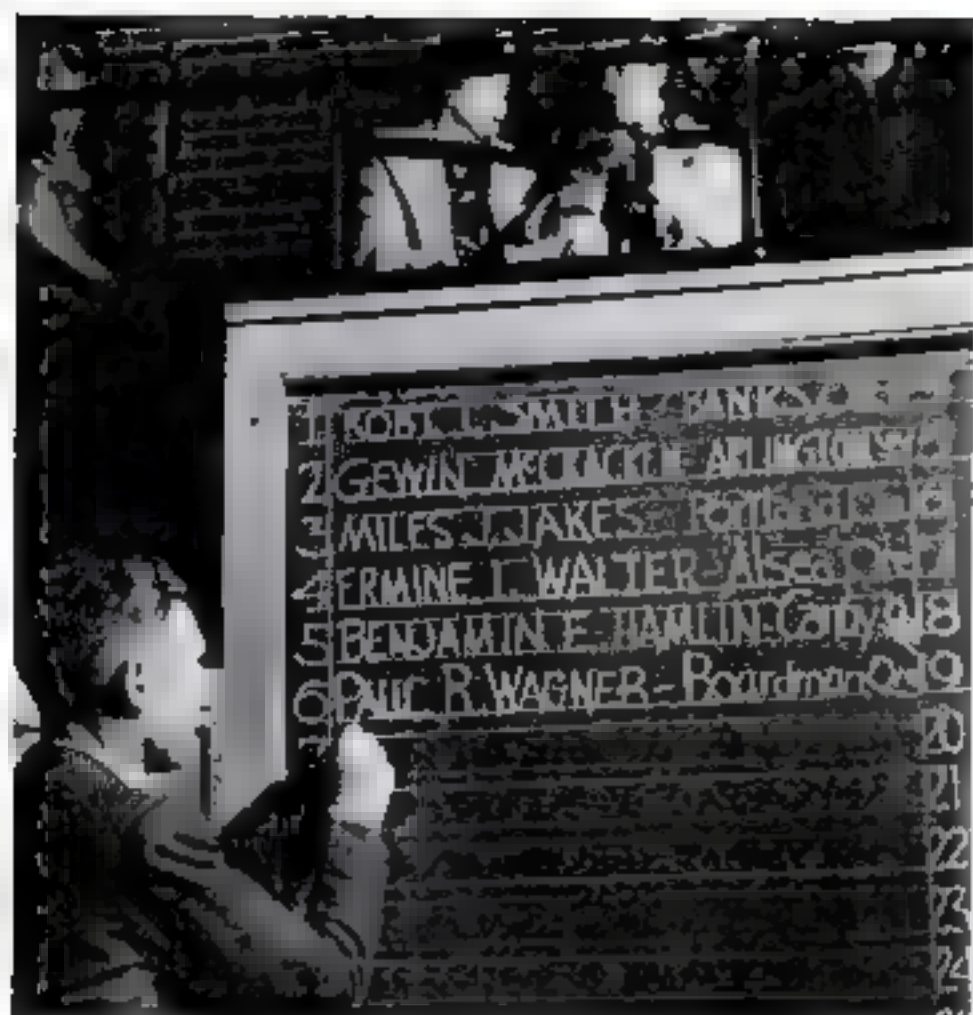 1 ROBT L. SMITH - BANKS
2 GEWIN MCCRACKEN ARLINGTON
3 MILES J. JAKES - Portland
4 ERMINE L. WALTER - Alsea Ore
5 BENJAMIN E. HAMLIN - 18
6 PAUL R. WAGNER - Boardman Or 19
20
21
22
23
24